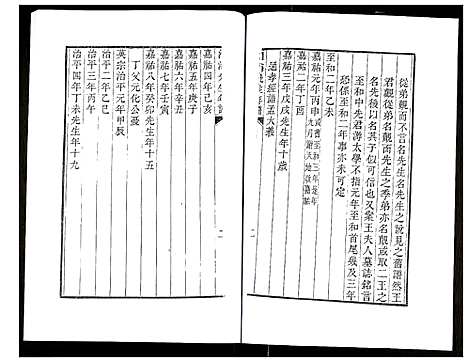 從弟覿而不言名先生名先生之說見之舊譜然王
君覿從弟名覿而先生之季弟亦名覿或取二王之
名先後以名其子似可信也又案王夫人墓誌銘言
至和中先君游太學不指元年至和首尾幾及三年
恐係至和二年事亦未可定
至和二年乙未
嘉祐元年丙申
嘉祐二年丁酉
嘉祐三年戊戌先生年十歲
是孝經語孟大義
二
嘉祐四年己亥
嘉祐五年庚子
嘉祐六年辛丑
嘉祐七年壬寅
嘉祐八年癸卯先生年十五
丁父元化公憂
英宗治平元年甲辰
治平二年乙巳
治平三年丙午
治平四年丁未先生年十九